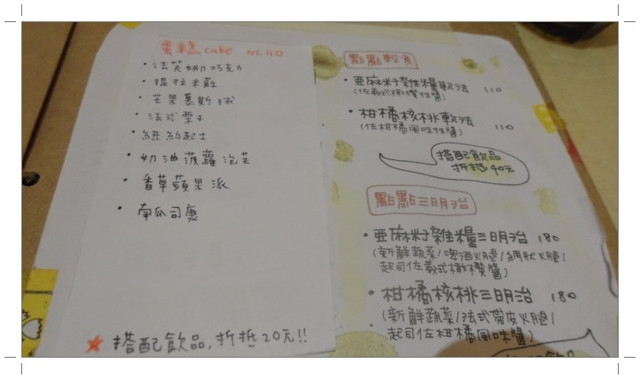 蛋糕 cake NT.110
• 法芙娜巧克力
• 提拉米蘇
• 芒果慕斯
• 法式栗子
• 紐約起士
• 奶油菠蘿泡芙
• 香草蘋果派
• 南瓜司康
★ 搭配飲品,折抵20元!!
點點輕食
• 亞麻籽雜糧軟法 110
(佐義式橄欖醬)
• 柑橘核桃軟法 110
(佐柑橘風味醬)
搭配飲品
折抵40元
點點三明治
• 亞麻籽雜糧三明治 180
(新鮮蔬菜/啤酒火腿/網狀火腿/
起司佐義式橄欖醬)
• 柑橘核桃三明治 180
(新鮮蔬菜/法式帶皮火腿/
起司佐柑橘風味醬)